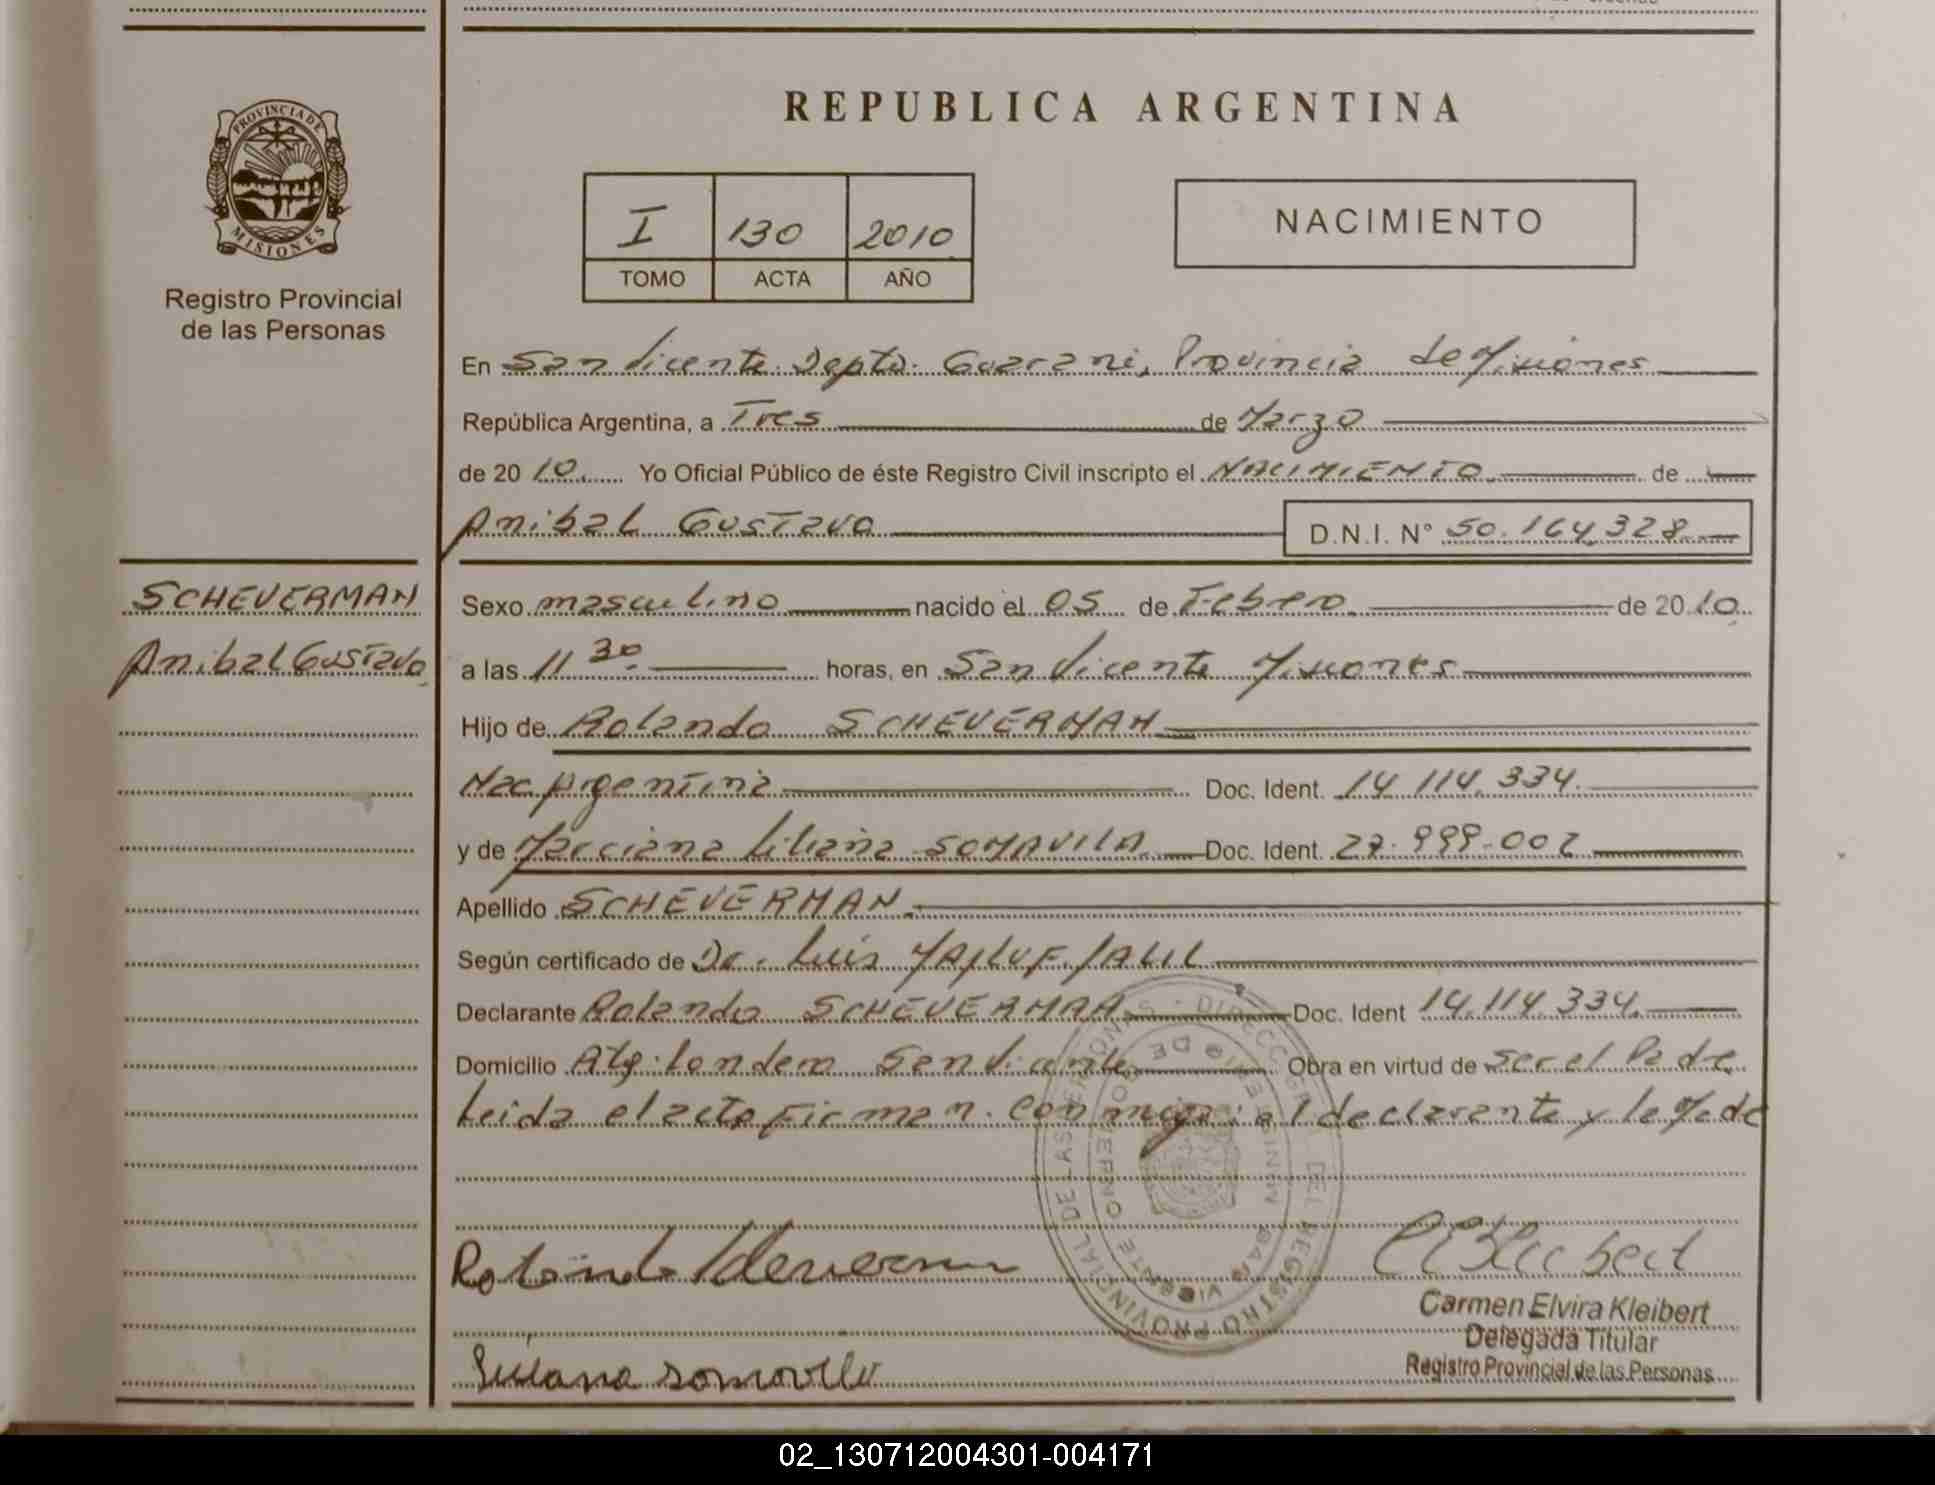 PROVINCIA DE
MISIONES
Registro Provincial
de las Personas
SCHEVERMAN
Anibal Gustavo
REPUBLICA ARGENTINA
I 130 2010
TOMO ACTA AÑO
NACIMIENTO
En San Vicente Depto. Guarani, Provincia de Misiones
República Argentina, a Tres de Marzo
de 20 10. Yo Oficial Público de éste Registro Civil inscripto el NACIMIENTO de
Anibal Gustavo D.N.I. N° 50.164.328
Sexo masculino nacido el 05 de Febrero de 20 10
a las 11 30 horas, en San Vicente Misiones
Hijo de Rolando SCHEVERMAN
Nac Argentina Doc. Ident. 14.114.334.
y de Marciana Liliana SOMAVILA Doc. Ident. 27.999.002
Apellido SCHEVERMAN
Según certificado de Dr. Luis
Declarante Rolando SCHEVERMAN Doc. Ident 14.114.334.
Domicilio Londero San Vicente Obra en virtud de ser el Padre
Leida el acta firman conmigo el declarante y la Made
DIRECC. GRAL. DEL REGISTRO PROVINCIAL DE LAS PERSONAS
Rolando Scheverman
Carmen Elvira Kleibert
Delegada Titular
Registro Provincial de las Personas
02_130712004301-004171